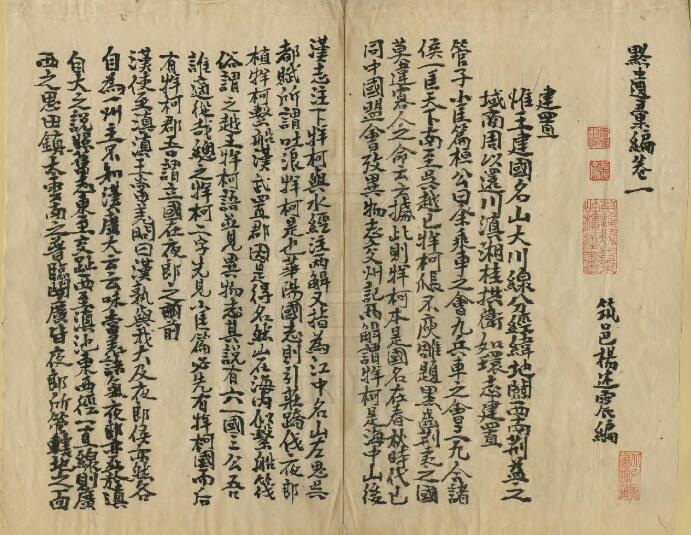 黔遺彙編卷一
筑邑楊述震編
建置
惟王建國名山大川線分經緯地闢西南荆益之
域商周以還川滇湘桂拱衛如環志建置
管子小匡篇桓公曰余乘車之會九兵車之會三九合諸
侯一匡天下南至吳越巴牂柯 不庾雕題黑齒荆夷之國
莫違寡人之命云云據此則牂柯本是國名在春秋時代已
同中國盟會攷異物志交州記兩解謂牂柯是海中山後
漢志注下牂柯與水經注兩解又指為江中名山左思吳
都賦所謂吐浪牂柯是也華陽國志則引莊蹻伐夜郎
植牂柯繫船漢武置郡因是得名然山在海內似繫船筏
俗謂之越王牂柯語並見異物志其說有六一國三公吾
誰適從哉總之牂柯二字先見小匡篇必先有牂柯國而后
有牂柯郡吾謂立國在夜郎之前
漢使至滇滇王當羌問曰漢孰與我大及夜郎侯亦然各
自為一州主不知漢廣大云云味當羌語氣夜郎亦在滇
自大之說 舊志東至交趾西至滇池東西經一直線則廣
西之思田鎮太雲南之普臨開廣皆夜郎所管轄地之面